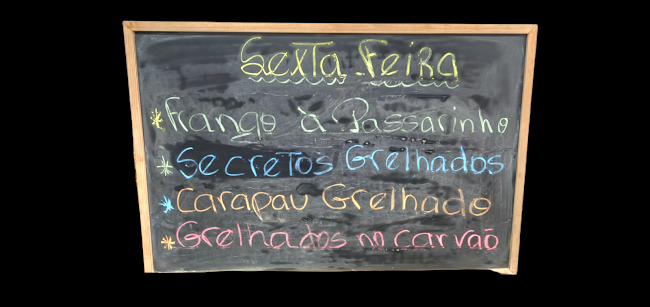 Sexta-Feira
* Frango à Passarinho
* Secretos Grelhados
* Carapau Grelhado
* Grelhados no carvão